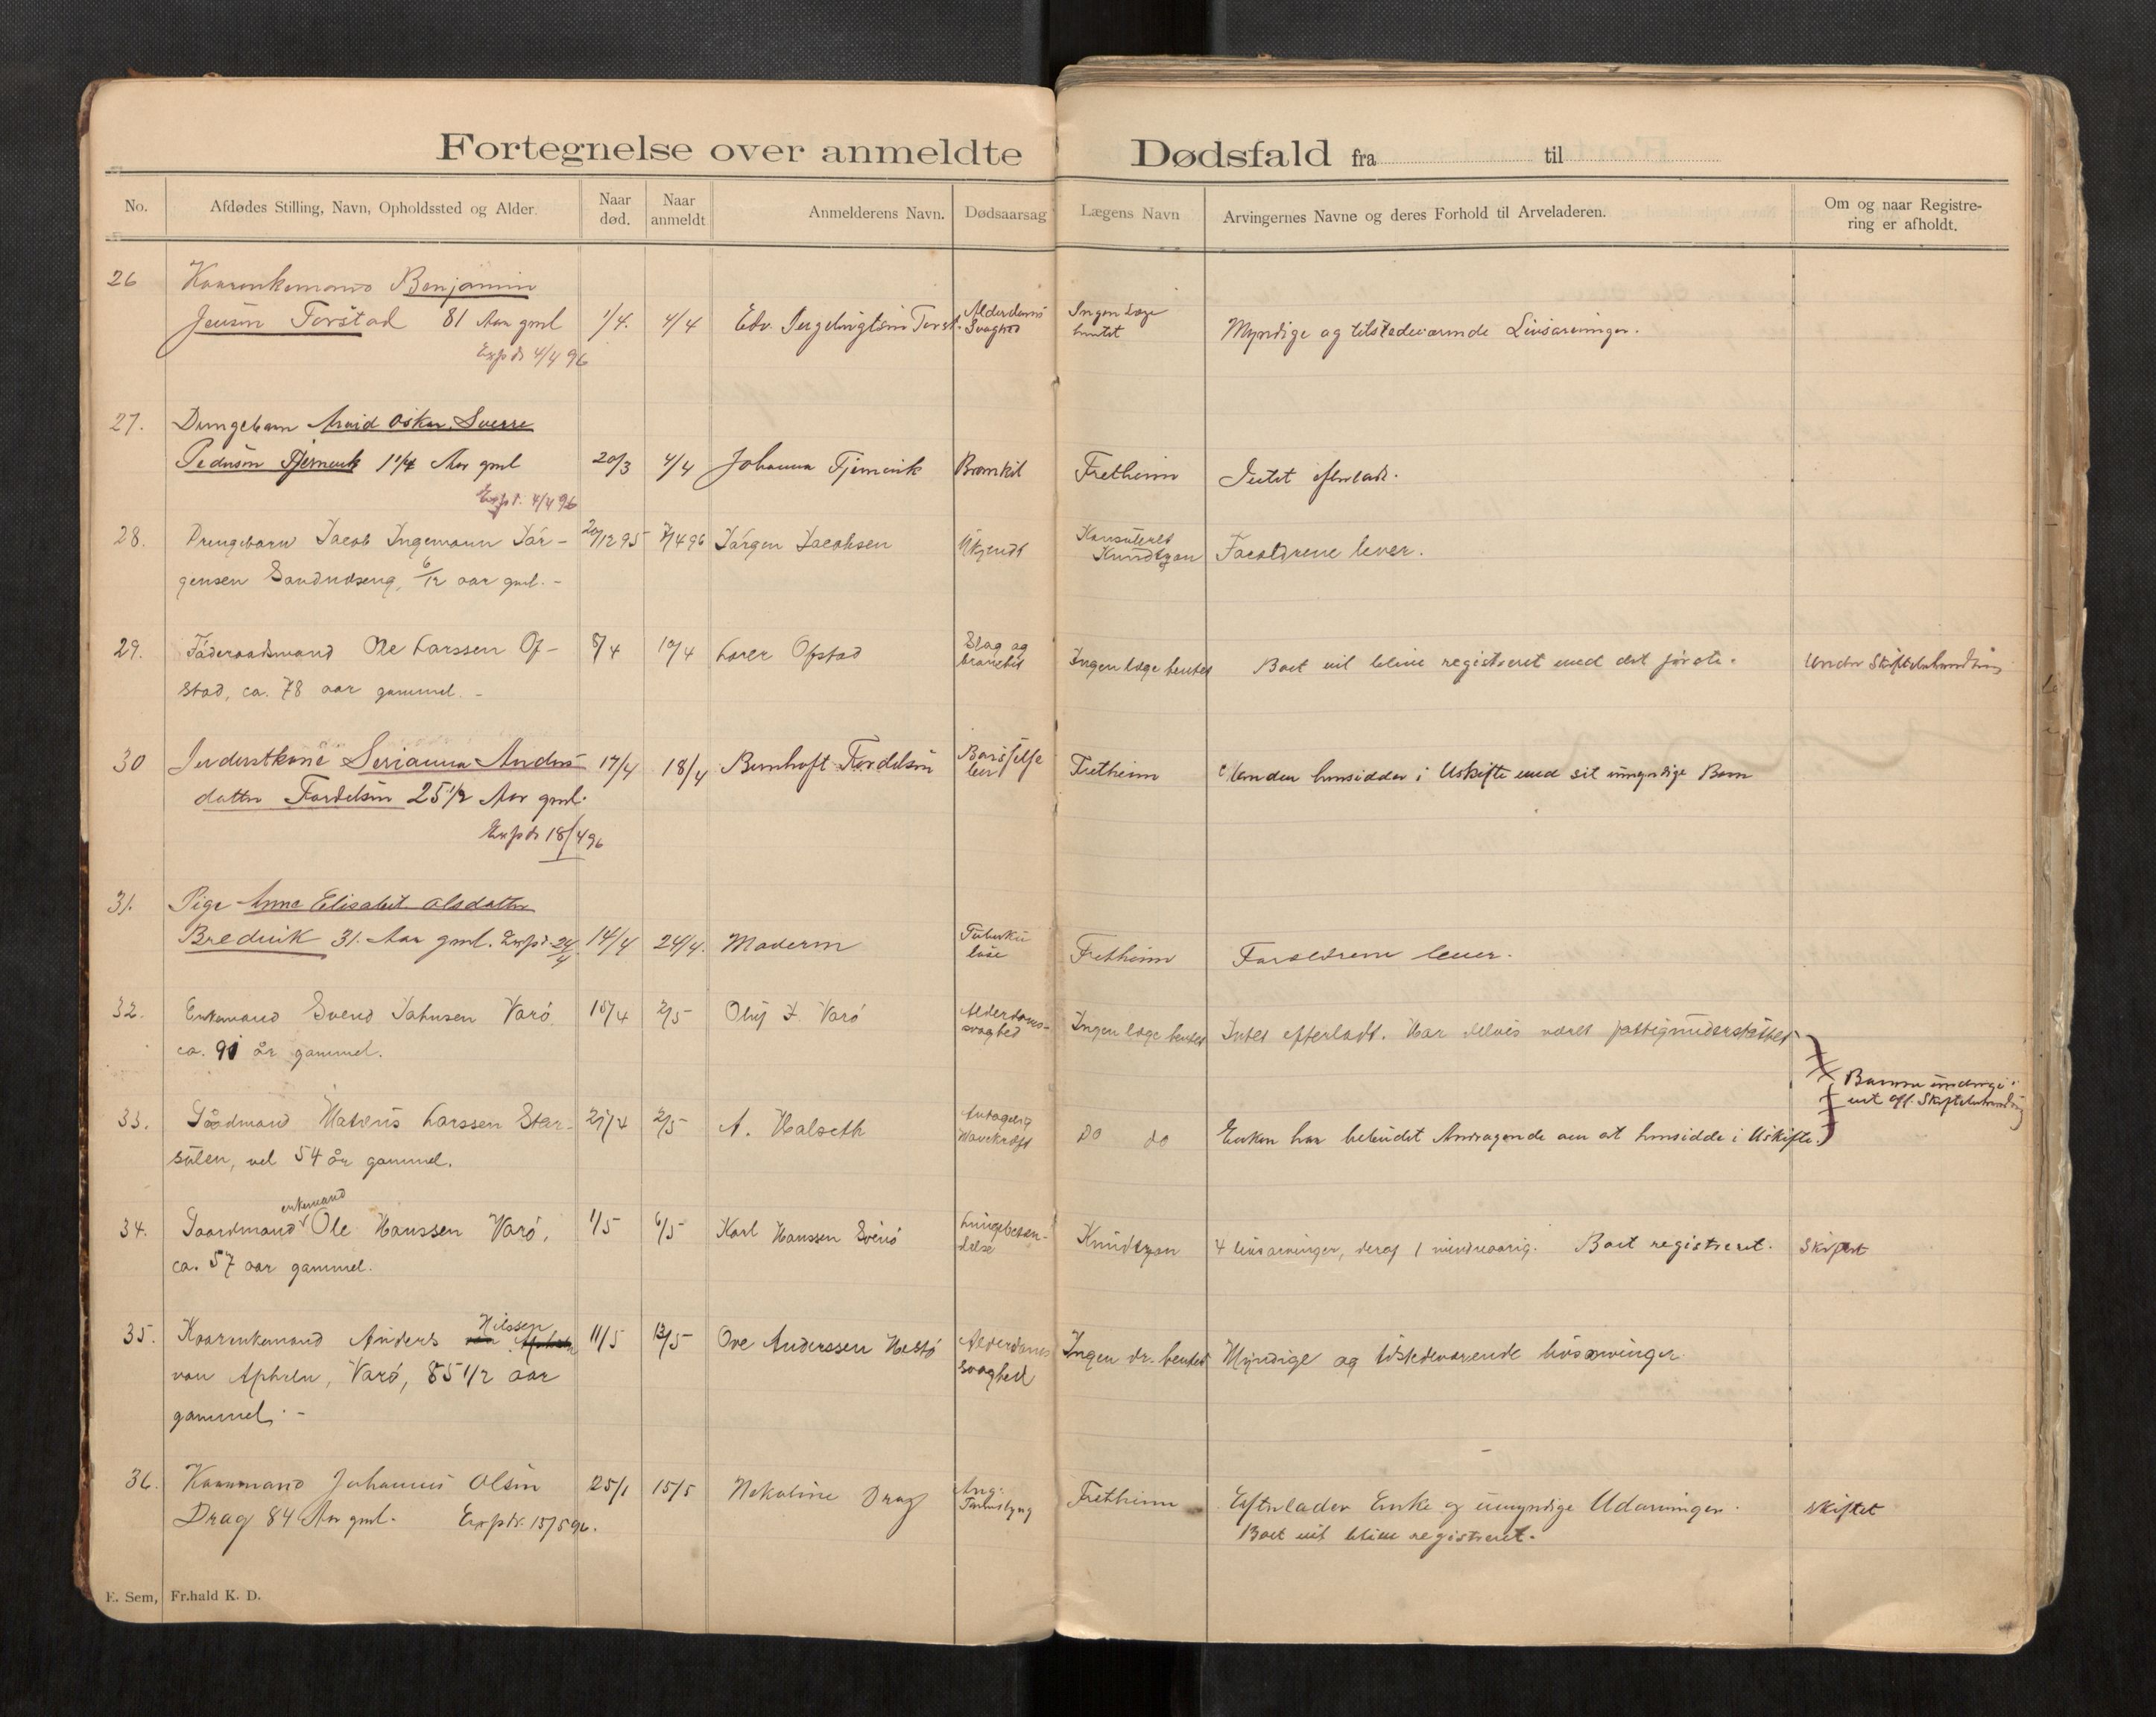 Fortegnelse over anmeldte Dødsfald fra til
No. Afdødes Stilling, Navn, Opholdssted og Alder. Naar død. Naar anmeldt Anmelderens Navn. Dødsaarsag Lægens Navn Arvingernes Navne og deres Forhold til Arveladeren. Om og naar Registre-
ring er afholdt.
26 Kaarenkemand Benjamin
Jensen Forstad 81 Aar gml 1/4. 4/4 Edv. Alderdoms Svaghed Ingen Læge hentet Myndige og tilstedeværende Livsarvinger.
Expd 4/4 96
27. Drengebarn Arvid Oskar Sverre
Pedersen 1 1/4 Aar gml 20/3 4/4 Johanna Fretheim Intet efterladt.
Expd. 4/4 96
28. Drengebarn Jacob Ingemann Jör- 20/12 95 7/4 96 Jörgen Jacobsen Ukjendt Konsuleret Knudtzon Forældrene lever.
gensen Sandvdseng, 6/12 aar gml. -
29. Föderaadsmand Ole Larssen Of- 8/4 10/4 Ofstad Slag og Ingen læge hentet Boet vil blive registreret med det første. Under Skiftebehandling
stad, ca. 78 aar gammel. -
30 Inderstkone Serianna Anders- 17/4 18/4 Bernhoft Fordelsen Barsel Fretheim Manden hensidder i Uskifte med sit umyndige Barn
datter Fordelsen 25 1/2 Aar gml.
Expd 18/4 96
31. Pige Anne Elisabet Olsdatter
Bredvik 31. Aar gml. Expd 24/4 14/4 24/4. Moderen Tuberku
löse Fretheim Forældrene lever.
32. Enkemand Svend Jahnsen Varö 15/4 2/5 Oluf J. Varö Alderdoms-
svaghed Ingen læge hentet Intet efterladt. Har delvis været fattigunderstøttet
ca. 90 år gammel.
Boerne undergi
ent off. Skiftebehandling
33. Gaardmand Larssen Star- 2/5 A. Halseth Antagelig do do Enken har bebudet Andragende om at hensidde i Uskifte.
sölen, vel 54 år gammel.
34. Gaardmand enkemand Ole Hanssen Varö, 1/5 6/5 Karl Hanssen Svinö Lungebetæn-
delse Knudtzon 4 livsarvinger, deraf 1 mindreaarig. Boet registreret. Skiftet
ca. 57 aar gammel.
35. Kaarenkemand Anders Nilssen 11/5 13/5 Ove Anderssen Hestö Alderdoms
svaghed Ingen dr. hentet Myndige og tilstedeværende livsarvinger.
von Aphelen, Varö, 85 1/2 aar
gammel. -
36. Kaarmand Johannes Olsen 25/1 15/5 Nekoline Drag Fretheim Efterlader Enke og umyndige Udarvinger. Skiftet
Drag 84 Aar gml. Expd. 15/5 96. Boet vil blive registreret.
E. Sem, Fr.hald K. D.